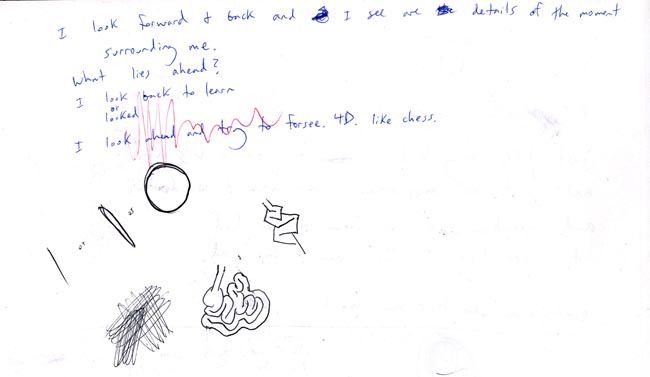 I look forward & back and I see are details of the moment
surrounding me.
What lies ahead?
I look back to learn
or
looked
I look ahead and try to forsee. 4D. like chess.
or
or